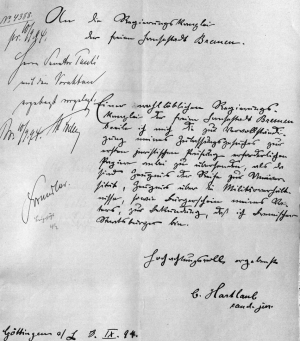 No. 4558.
pr. 10/9 94.
An die Regierungskanzlei
der freien Hansestadt Bremen.
Herrn Senator Pauli
mit den Vorakten
ergebenst vorgelegt.
Einer wohllöblichen Regierungs-
kanzlei der freien Hansestadt Bremen
teile ich mit die zur Vervollständi-
gung meines Zulassungsgesuches zur
ersten juristischen Prüfung erforderlichen
Papiere zu übersenden, als da
sind Zeugnis der Reife zur Univer-
sität, Zeugnis über die Militärverhält-
nisse, sowie Bürgerschein meines Va-
ters, zur Bekundung, daß ich bremischer
Staatsbürger bin.
Hochachtungsvoll ergebenst
C. Hartlaub
cand. jur.
Göttingen a/L D. IX. 94.